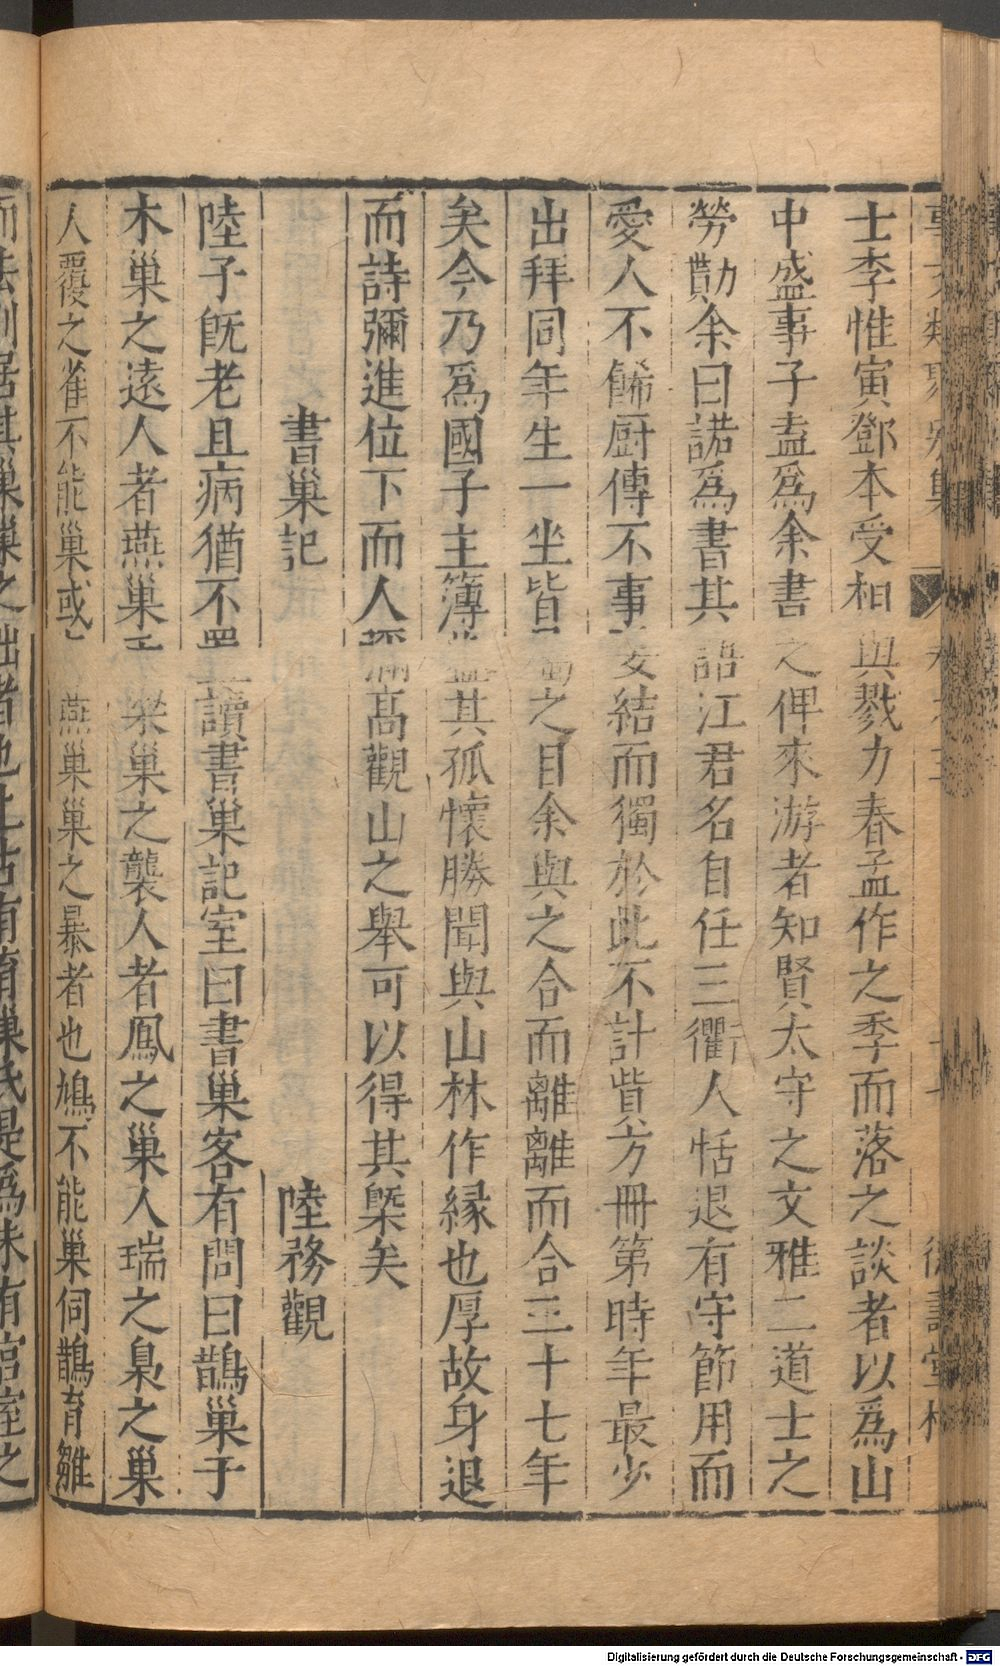 士李惟寅鄧本受相與戮力春孟作之季而落之談者以爲山
中盛事子盍爲余書之俾來游者知賢太守之文雅二道士之
勞勩余曰諾爲書其語江君名自任三衢人恬退有守節用而
愛人不餙厨傳不事結而獨於此不計貲方冊第時年最少
出拜同年生一坐皆之目余與之合而離離而合三十七年
矣今乃爲國子主簿其孤懷勝聞與山林作縁也厚故身退
而詩彌進位下而人高觀山之舉可以得其槩矣
書巢記 陸務觀
陸子旣老且病猶不讀書巢記室曰書巢客有問曰鵲巢于
木巢之遠人者燕巢梁巢之襲人者鳳之巢人瑞之梟之巢
人覆之雀不能巢或燕巢巢之暴者也鳩不能巢伺鵲育雛
而法則居其巢巢之拙者也上古有有巢氏是爲未有宮室之
Digitalisierung gefördert durch die Deutsche Forschungsgemeinschaft - DFG